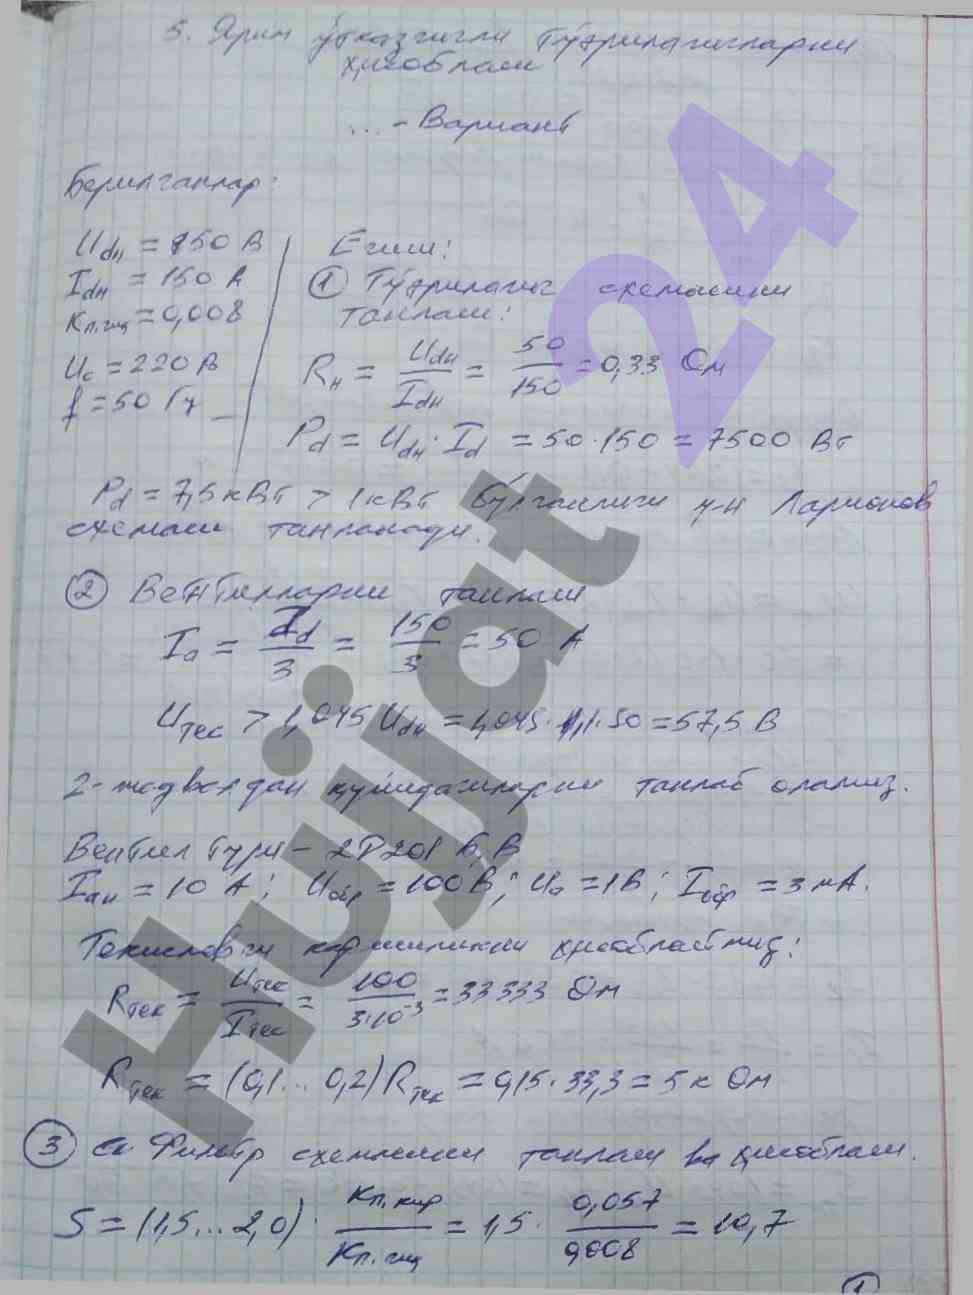 5. Ярим ўтказгичли Тўғрилагичларни
ҳисоблаш
... - Вариант
Берилганлар:
Udн = 150 В
Idн = 150 А
Кп.чиқ = 0,008
Uс = 220 В
f = 50 Гц
Ечиш:
① Тўғрилагич схемасини
танлаш:
Rн = Udн / Idн = 50 / 150 = 0,33 Ом
Pd = Udн · Id = 50 · 150 = 7500 Вт
Pd = 7,5 кВт > 1 кВт бўлганлиги у-н Ларионов
схемаси танланади.
② Вентилларни танлаш
Iа = Id / 3 = 150 / 3 = 50 А
Uтес > 1,045 Udн = 1,045 · 1,1 · 50 = 57,5 В
2-жадвалдан қуйидагиларни танлаб оламиз.
Вентил тури - 2Р201 Б, В
Iан = 10 А; Uобр = 100 В; Uо = 1 В; Iобр = 3 мА.
қаршиликни ҳисоблаймиз:
Rтек = Uтес / Iтес = 100 / 3·10⁻³ = 33333 Ом
Rтек = (0,1 ... 0,2) Rтек = 0,15 · 33,3 = 5 к Ом
③ Филтр схемасини танлаш ва ҳисоблаш.
S = (1,5 ... 2,0) · Кп.кир / Кп.чиқ = 1,5 · 0,057 / 0,008 = 10,7
1
Hujjat 24